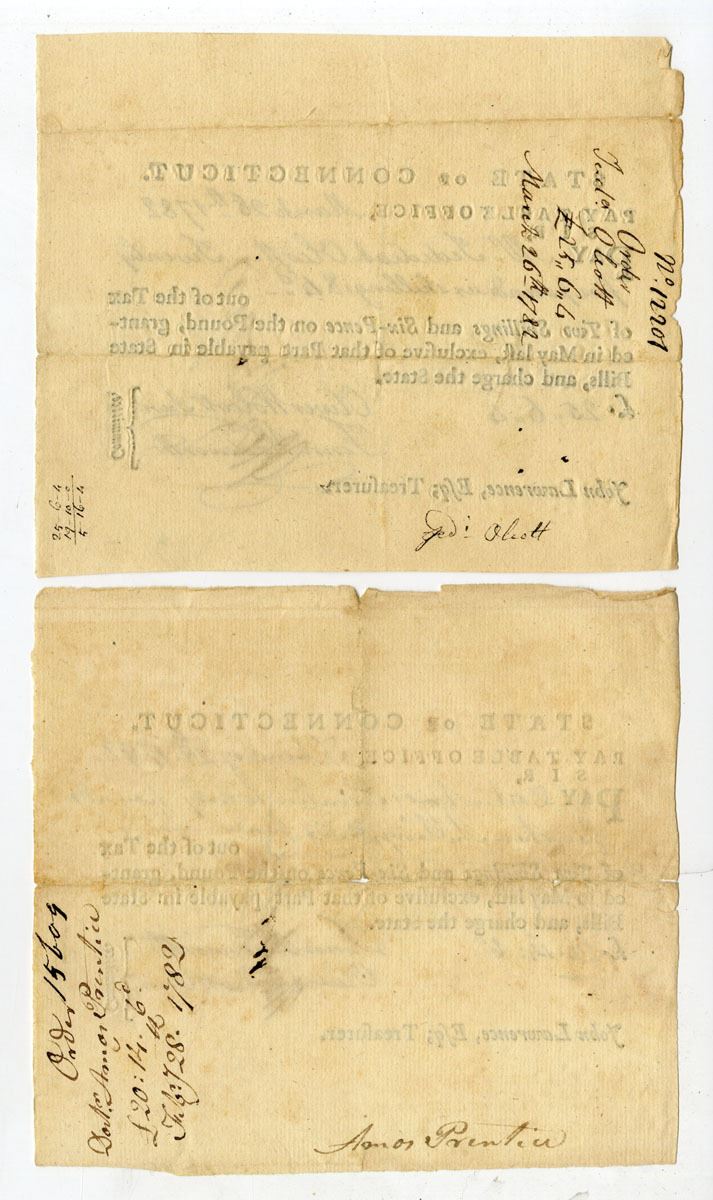 Nº. 12201
Order
Jed:ʰ Olcott
£25,,6,,4
March 26th. 1782
STATE OF CONNECTICUT.
PAY-TABLE OFFICE, March 26th 1782
SIR,
PAY
out of the Tax
of Two Shillings and Six-Pence on the Pound, grant-
ed in May last, exclusive of that Part payable in State
Bills, and charge the State.
£. 25. 6. 4
Committee
John Lawrence, Esq; Treasurer.
25-6-4
19-10-0
5-16-4
Jedi: Olcott
STATE OF CONNECTICUT.
PAY-TABLE OFFICE,
SIR,
PAY
out of the Tax
of Two Shillings and Six Pence on the Pound, grant-
ed in May last, exclusive of that Part payable in State
Bills, and charge the State.
John Lawrence, Esq; Treasurer.
Order 15609
Doctr. Amos Prentice
£20:14.6d
Feby. 28th. 1782
Amos Prentice